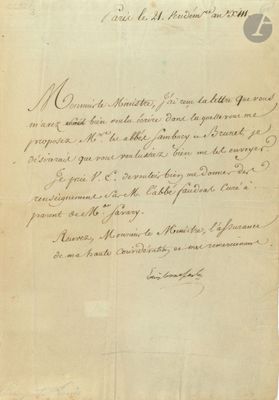 Paris le 21. Vendém.re an XIII.
Monsieur le Ministre, j'ai reçu la lettre que vous
m'avez bien voulu écrire dans laquelle vous me
proposez M.rs les abbés Sambucy et Brunet, je
désirerais que vous voulussiez bien me les envoyer
Je prie V. E. de vouloir bien me donner des
renseignements sur M. l'abbé Curé à
parent de M. Savary.
Recevez, Monsieur le Ministre, l'assurance
de ma haute considération, et mes remerciements.